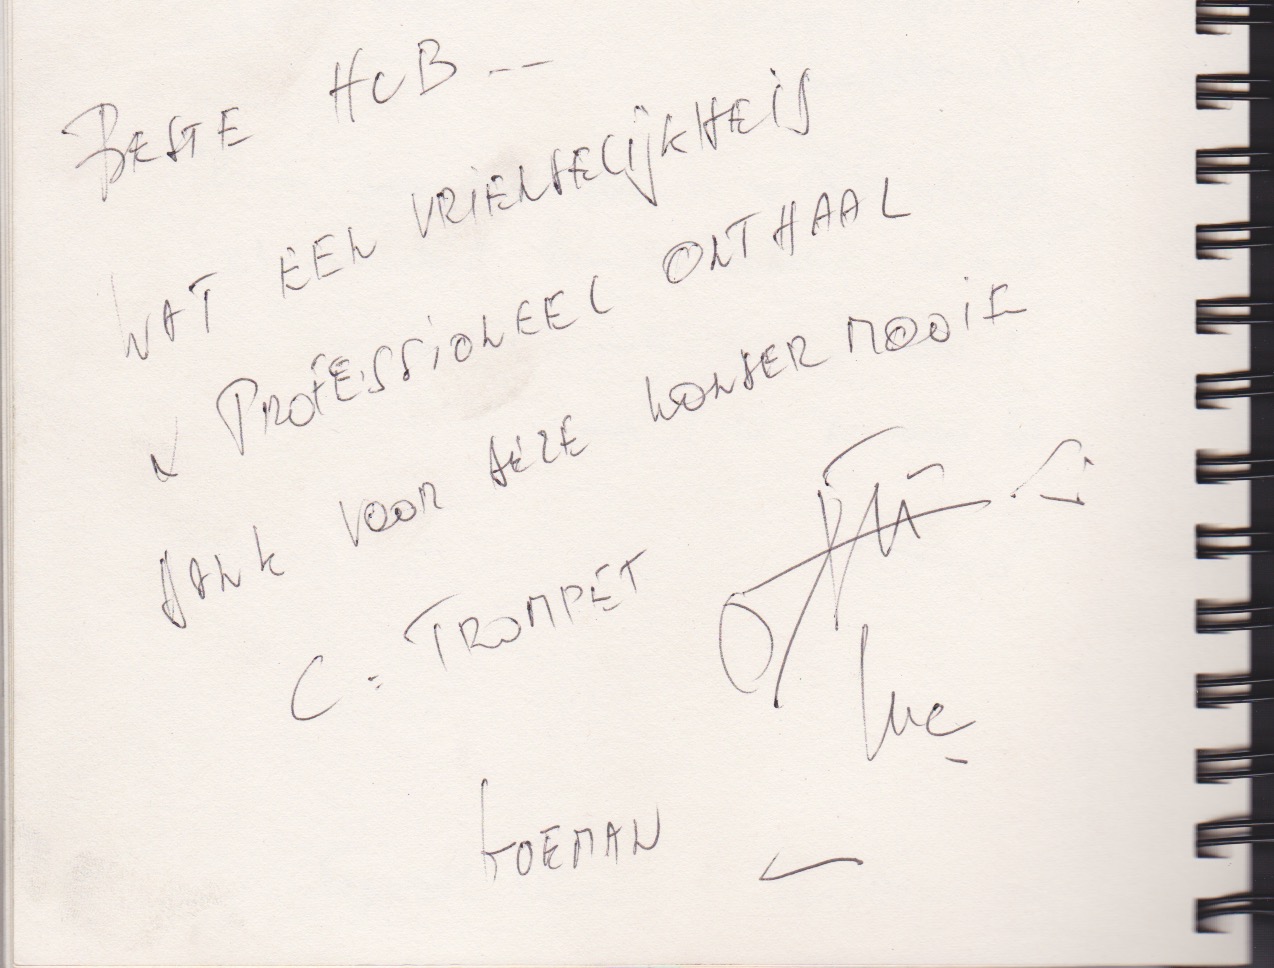 BESTE HUB --
WAT EEN VRIENDELIJKHEID
& PROFESSIONEEL ONTHAAL
DANK VOOR DEZE WONDERMOOIE
C. TROMPET
Luc
KOEMAN